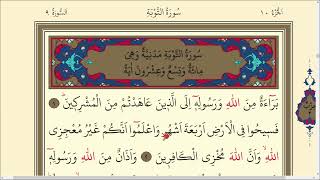 الجزء ١٠ سورة التوبة السورة ٩
سُورَةُ التَّوْبَةِ مَدَنِيَّةٌ وَهِيَ
مِائَةٌ وَتِسْعٌ وَعِشْرُونَ آيَةً
بَرَاءَةٌ مِنَ اللّٰهِ وَرَسُولِهِ إِلَى الَّذِينَ عَاهَدْتُمْ مِنَ الْمُشْرِكِينَ ١
فَسِيحُوا فِي الْأَرْضِ أَرْبَعَةَ أَشْهُرٍ وَاعْلَمُوا أَنَّكُمْ غَيْرُ مُعْجِزِي
اللّٰهِ وَأَنَّ اللّٰهَ مُخْزِي الْكَافِرِينَ ٢ وَأَذَانٌ مِنَ اللّٰهِ وَرَسُولِهِ